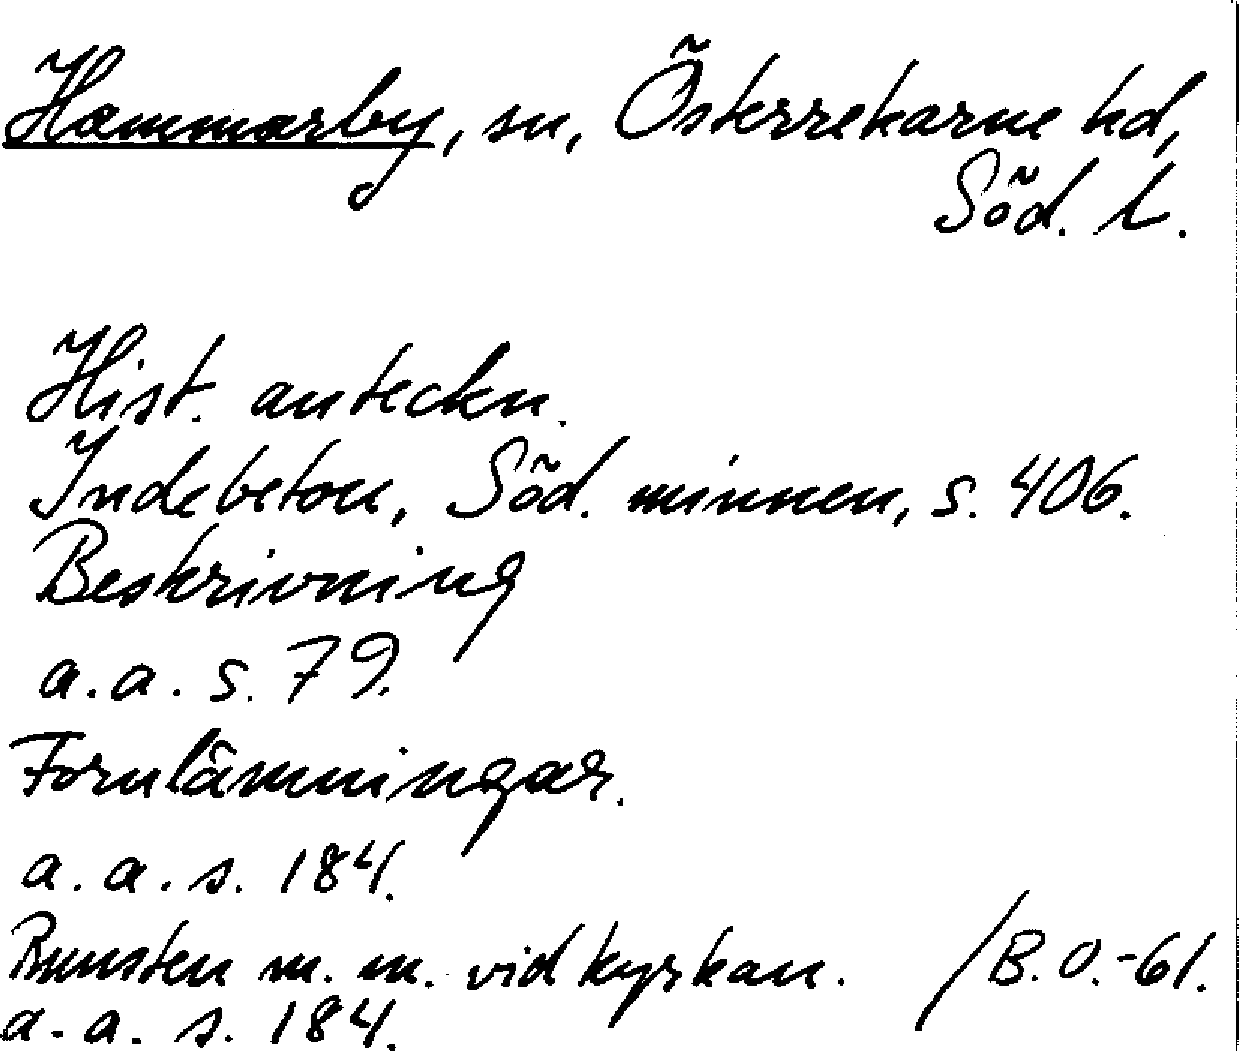 Hammarby, sn, Österrekarne hd,
Söd. l.
Hist. anteckn.
Indebetou, Söd. minnen, s. 406.
Beskrivning
a.a. s. 79.
Fornlämningar.
a.a. s. 184.
Runsten m.m. vid kyrkan. /B.O.-61.
a.a. s. 184.